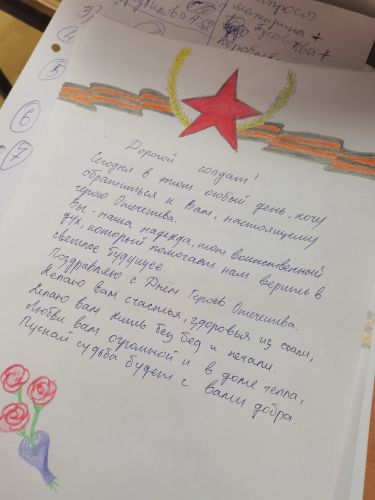 3)
5
6
7
Дорогой солдат!
Сегодня в этот особый день, хочу
обратиться к Вам, настоящему
герою Отечества.
Вы - наша надежда, тот воинственный
дух, который помогает нам верить в
светлое будущее.
Поздравляю с Днём Героев Отечества.
Желаю вам счастья, здоровья из стали,
Желаю вам жить без бед и печали.
Любви вам огромной и в доме тепла,
Пускай судьба будет с вами добра.